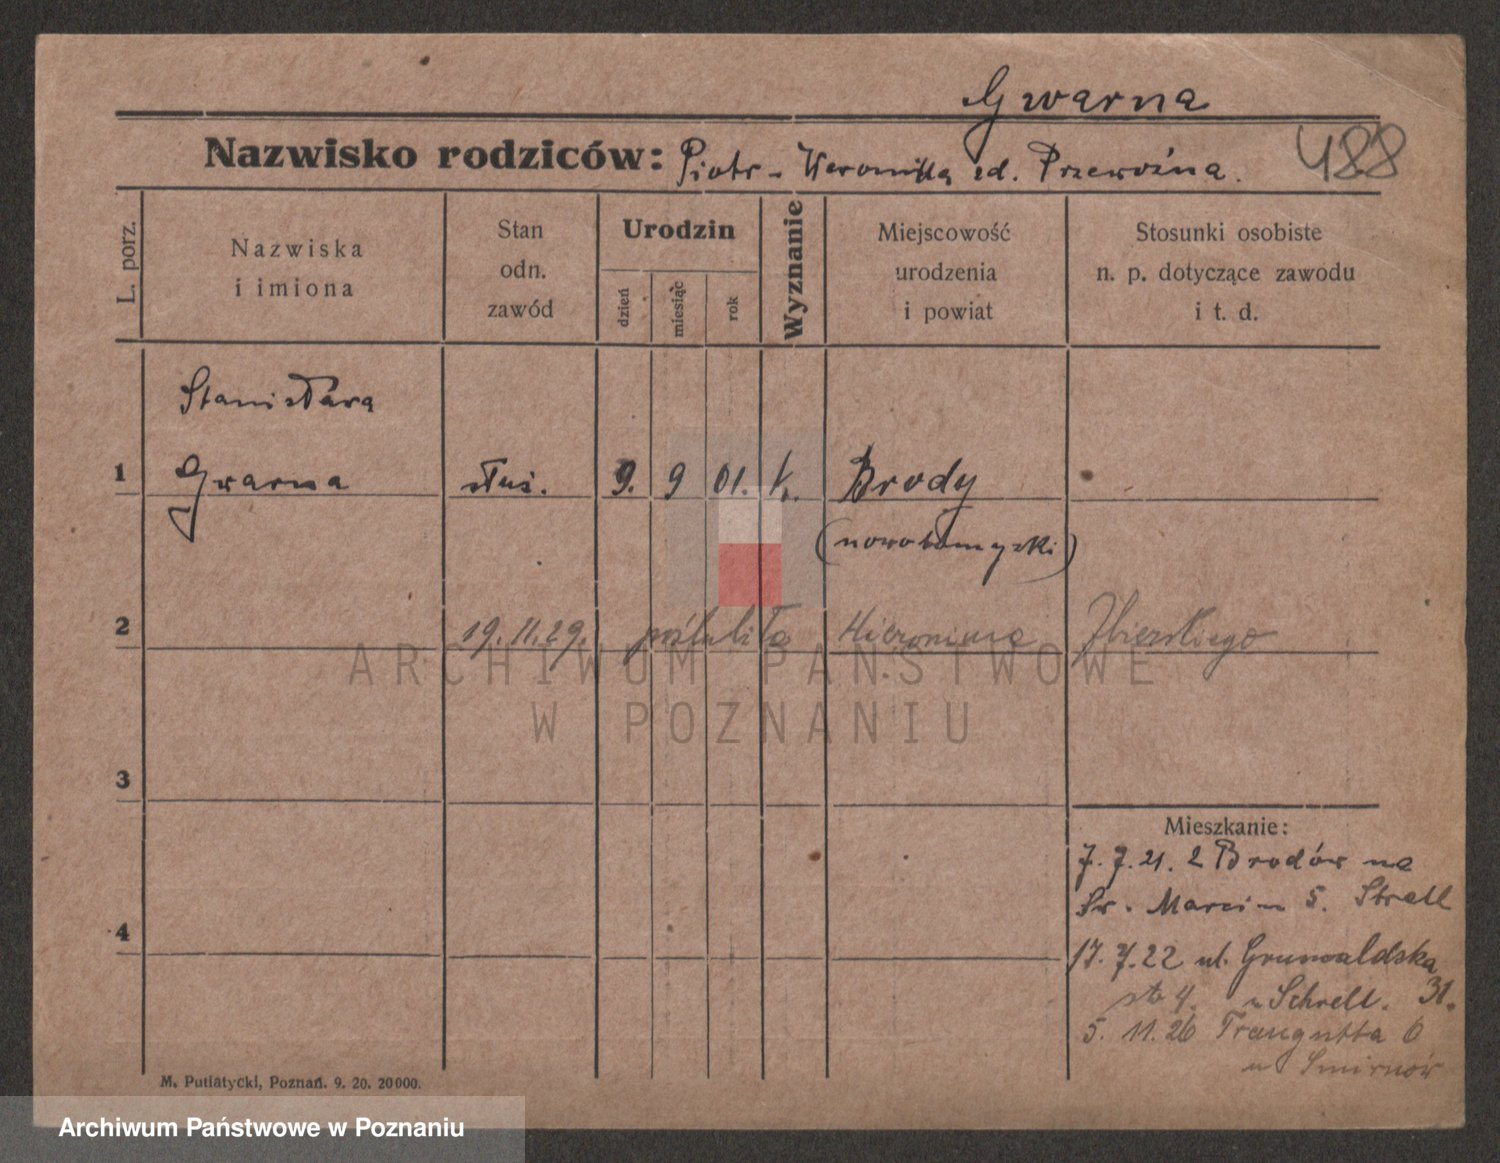 Gwarna
Nazwisko rodziców: Piotr - Weronika zd. Przewoźna.
488
L. porz.
Nazwiska
i imiona
Stan
odn.
zawód
Urodzin
dzień
miesiąc
rok
Wyznanie
Miejscowość
urodzenia
i powiat
Stosunki osobiste
n. p. dotyczące zawodu
i t. d.
Stanisława
1 Gwarna służ. 9. 9 01. k. Brody
(nowotomyski)
2 19.11.29. poślubiła Hieronima Zbierskiego
ARCHIWUM PAŃSTWOWE
W POZNANIU
3
Mieszkanie:
7. 7. 21. z Brodów na
Św. Marcin 5. Strell
4
17. 7. 22 ul. Grunwaldska
31.
u Schrell.
5. 11. 26 Traugutta 6
u Smirnów
M. Putiatycki, Poznań. 9. 20. 20000.
Archiwum Państwowe w Poznaniu